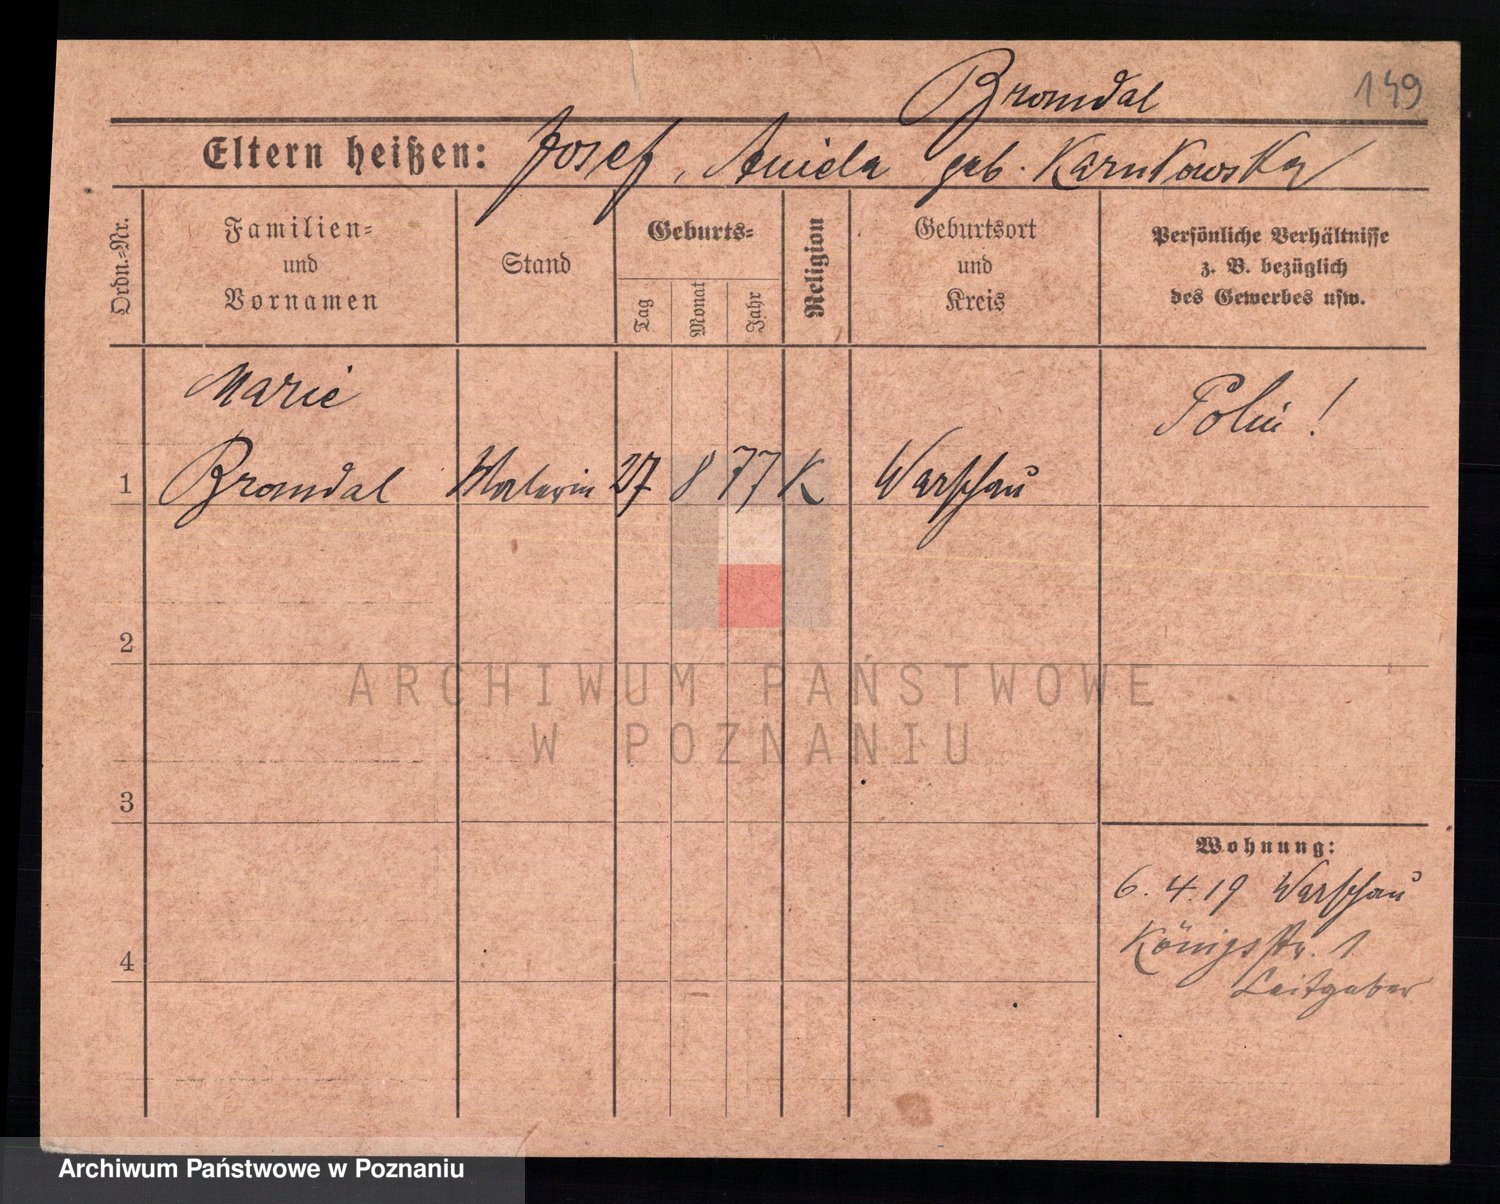 Bromdal
149
Eltern heißen: Josef, Aniela geb. Karnkowska
Ordn.-Nr.
Familien=
und
Vornamen
Stand
Geburts=
Tag
Monat
Jahr
Religion
Geburtsort
und
Kreis
Persönliche Verhältnisse
z. B. bezüglich
des Gewerbes usw.
Marie
Polin!
1 Bromdal Malerin 27 8 77 K Warschau
2
ARCHIWUM PAŃSTWOWE
W POZNANIU
3
Wohnung:
6.4.19 Warschau
Königsstr. 1
4
Leitgeber
Archiwum Państwowe w Poznaniu